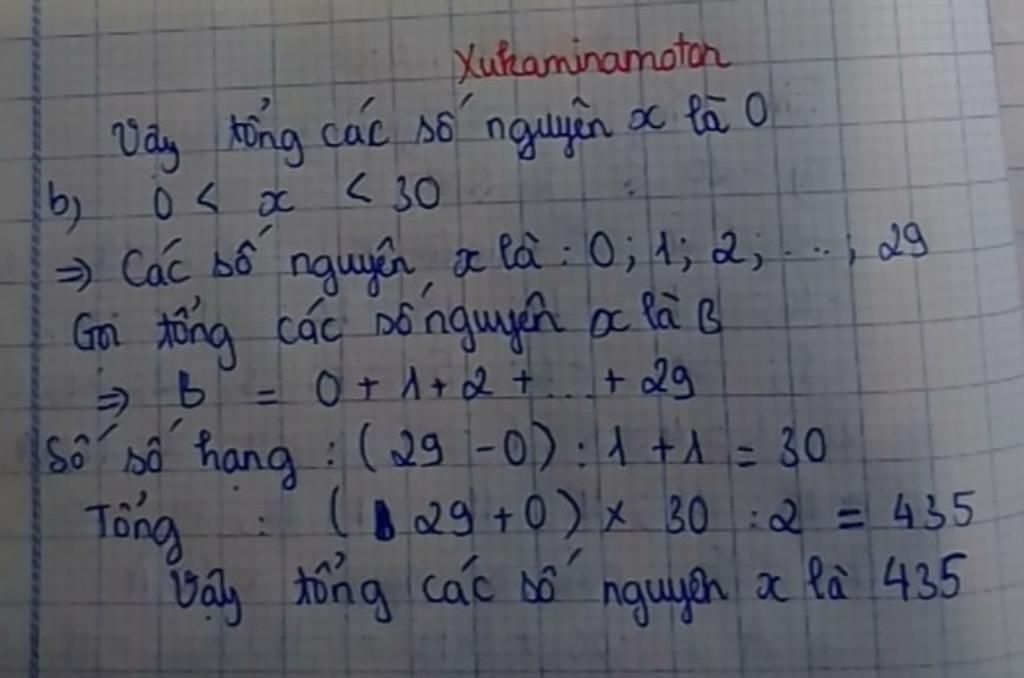 Xukaminamoton
Vậy tổng các số nguyên x là 0
b) 0 < x < 30
=> Các số nguyên x là : 0; 1; 2; ...; 29
Gọi tổng các số nguyên x là B
=> B = 0 + 1 + 2 + ... + 29
Số số hạng : (29 - 0) : 1 + 1 = 30
Tổng : (29 + 0) × 30 : 2 = 435
Vậy tổng các số nguyên x là 435